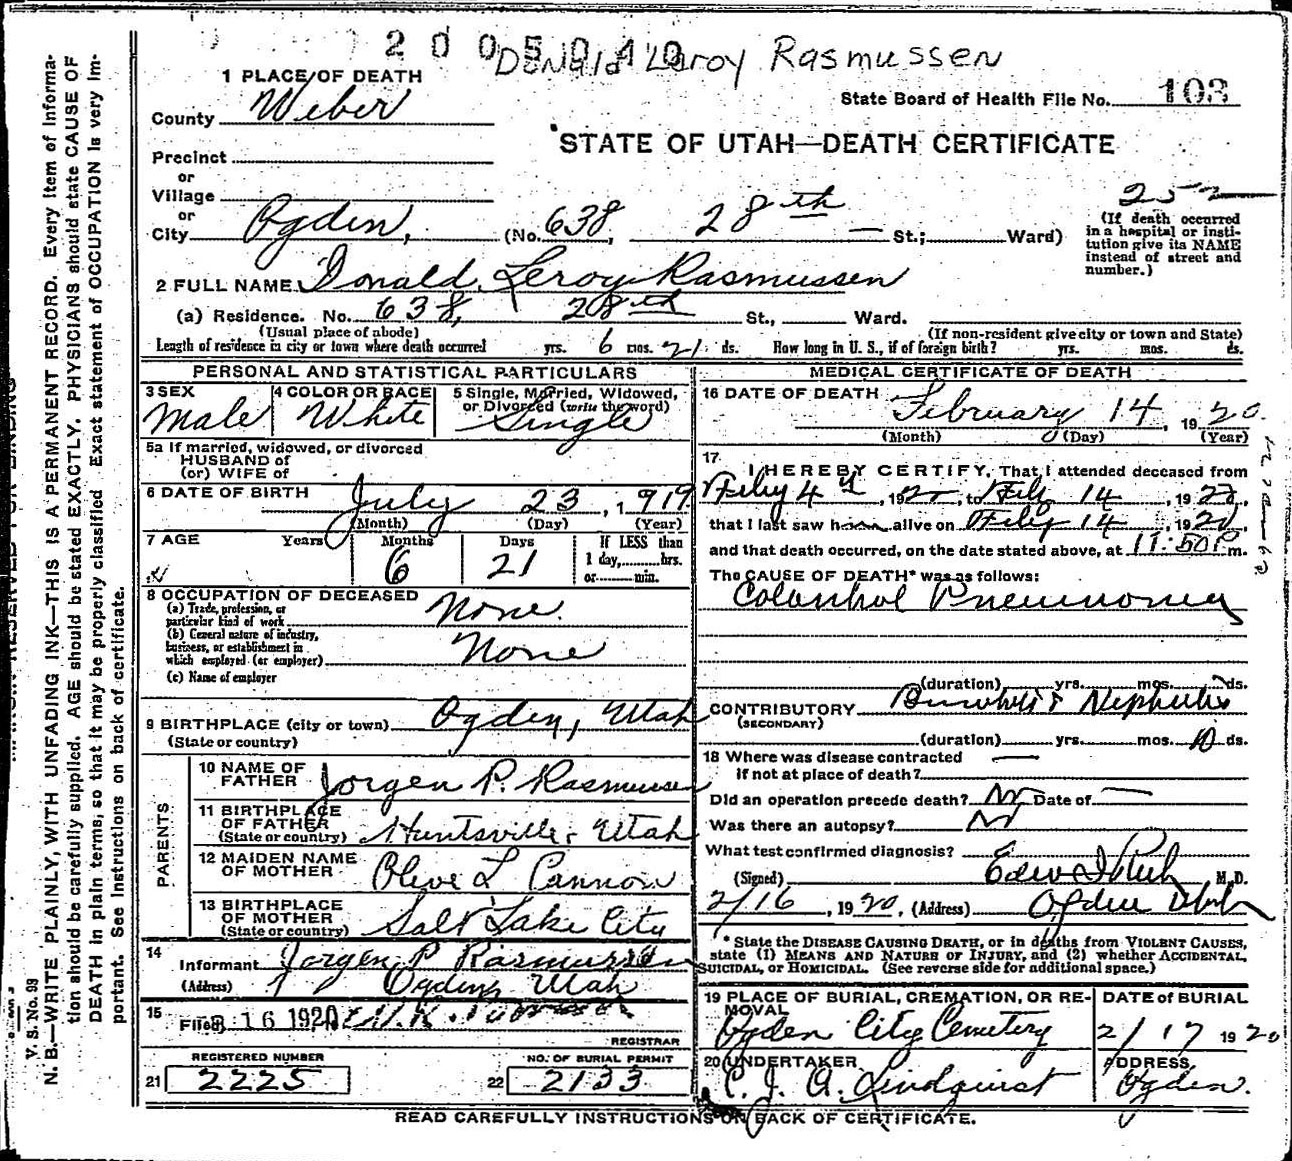 2005010
Donald Leroy Rasmussen
1 PLACE OF DEATH
County Weber
State Board of Health File No. 103
STATE OF UTAH—DEATH CERTIFICATE
Precinct
or
Village
or
City Ogden, (No. 638, 28th — St.; Ward)
252
(If death occurred in a hospital or institution give its NAME instead of street and number.)
2 FULL NAME Donald Leroy Rasmussen
(a) Residence. No. 638, 28th St., Ward.
(Usual place of abode) (If non-resident give city or town and State)
Length of residence in city or town where death occurred yrs. 6 mos. 21 ds. How long in U. S., if of foreign birth? yrs. mos. ds.
PERSONAL AND STATISTICAL PARTICULARS
3 SEX Male
4 COLOR OR RACE White
5 Single, Married, Widowed, or Divorced (write the word) Single
5a If married, widowed, or divorced
HUSBAND of
(or) WIFE of
6 DATE OF BIRTH July 23, 1919
(Month) (Day) (Year)
7 AGE Years Months 6 Days 21
If LESS than
1 day, hrs.
or min.
8 OCCUPATION OF DECEASED
(a) Trade, profession, or
particular kind of work None.
(b) General nature of industry,
business, or establishment in
which employed (or employer) None
(c) Name of employer
9 BIRTHPLACE (city or town) Ogden, Utah
(State or country)
PARENTS
10 NAME OF FATHER Jorgen P. Rasmussen
11 BIRTHPLACE OF FATHER
(State or country) Huntsville, Utah
12 MAIDEN NAME OF MOTHER Olive L Cannon
13 BIRTHPLACE OF MOTHER
(State or country) Salt Lake City
14 Informant Jorgen P Rasmussen
(Address) Ogden, Utah
15 Filed 2 16 1920
REGISTRAR
REGISTERED NUMBER
21 2225
NO. OF BURIAL PERMIT
22 2133
MEDICAL CERTIFICATE OF DEATH
16 DATE OF DEATH February 14, 1920.
(Month) (Day) (Year)
17
I HEREBY CERTIFY, That I attended deceased from
Feby 4th, 1920, to Feb 14, 1920,
that I last saw him alive on Feby 14, 1920,
and that death occurred, on the date stated above, at 11:50 P m.
The CAUSE OF DEATH* was as follows:
Pneumonia
(duration) yrs. mos. ds.
CONTRIBUTORY Bronchitis Nephritis
(SECONDARY)
(duration) yrs. mos. 10 ds.
18 Where was disease contracted —
if not at place of death?
Did an operation precede death? No Date of —
Was there an autopsy? No
What test confirmed diagnosis?
(Signed) M.D.
2/16, 1920, (Address) Ogden Utah
* State the DISEASE CAUSING DEATH, or in deaths from VIOLENT CAUSES,
state (1) MEANS AND NATURE OF INJURY, and (2) whether ACCIDENTAL,
SUICIDAL, or HOMICIDAL. (See reverse side for additional space.)
19 PLACE OF BURIAL, CREMATION, OR REMOVAL
Ogden City Cemetery
DATE of BURIAL
2/17 1920
20 UNDERTAKER
C. J. A. Lindquist
ADDRESS
Ogden.
READ CAREFULLY INSTRUCTIONS ON BACK OF CERTIFICATE.
V. S. No. 93
N. B.—WRITE PLAINLY, WITH UNFADING INK—THIS IS A PERMANENT RECORD. Every item of information
should be carefully supplied. AGE should be stated EXACTLY. PHYSICIANS should state CAUSE OF
DEATH in plain terms, so that it may be properly classified. Exact statement of OCCUPATION is very important.
See instructions on back of certificate.